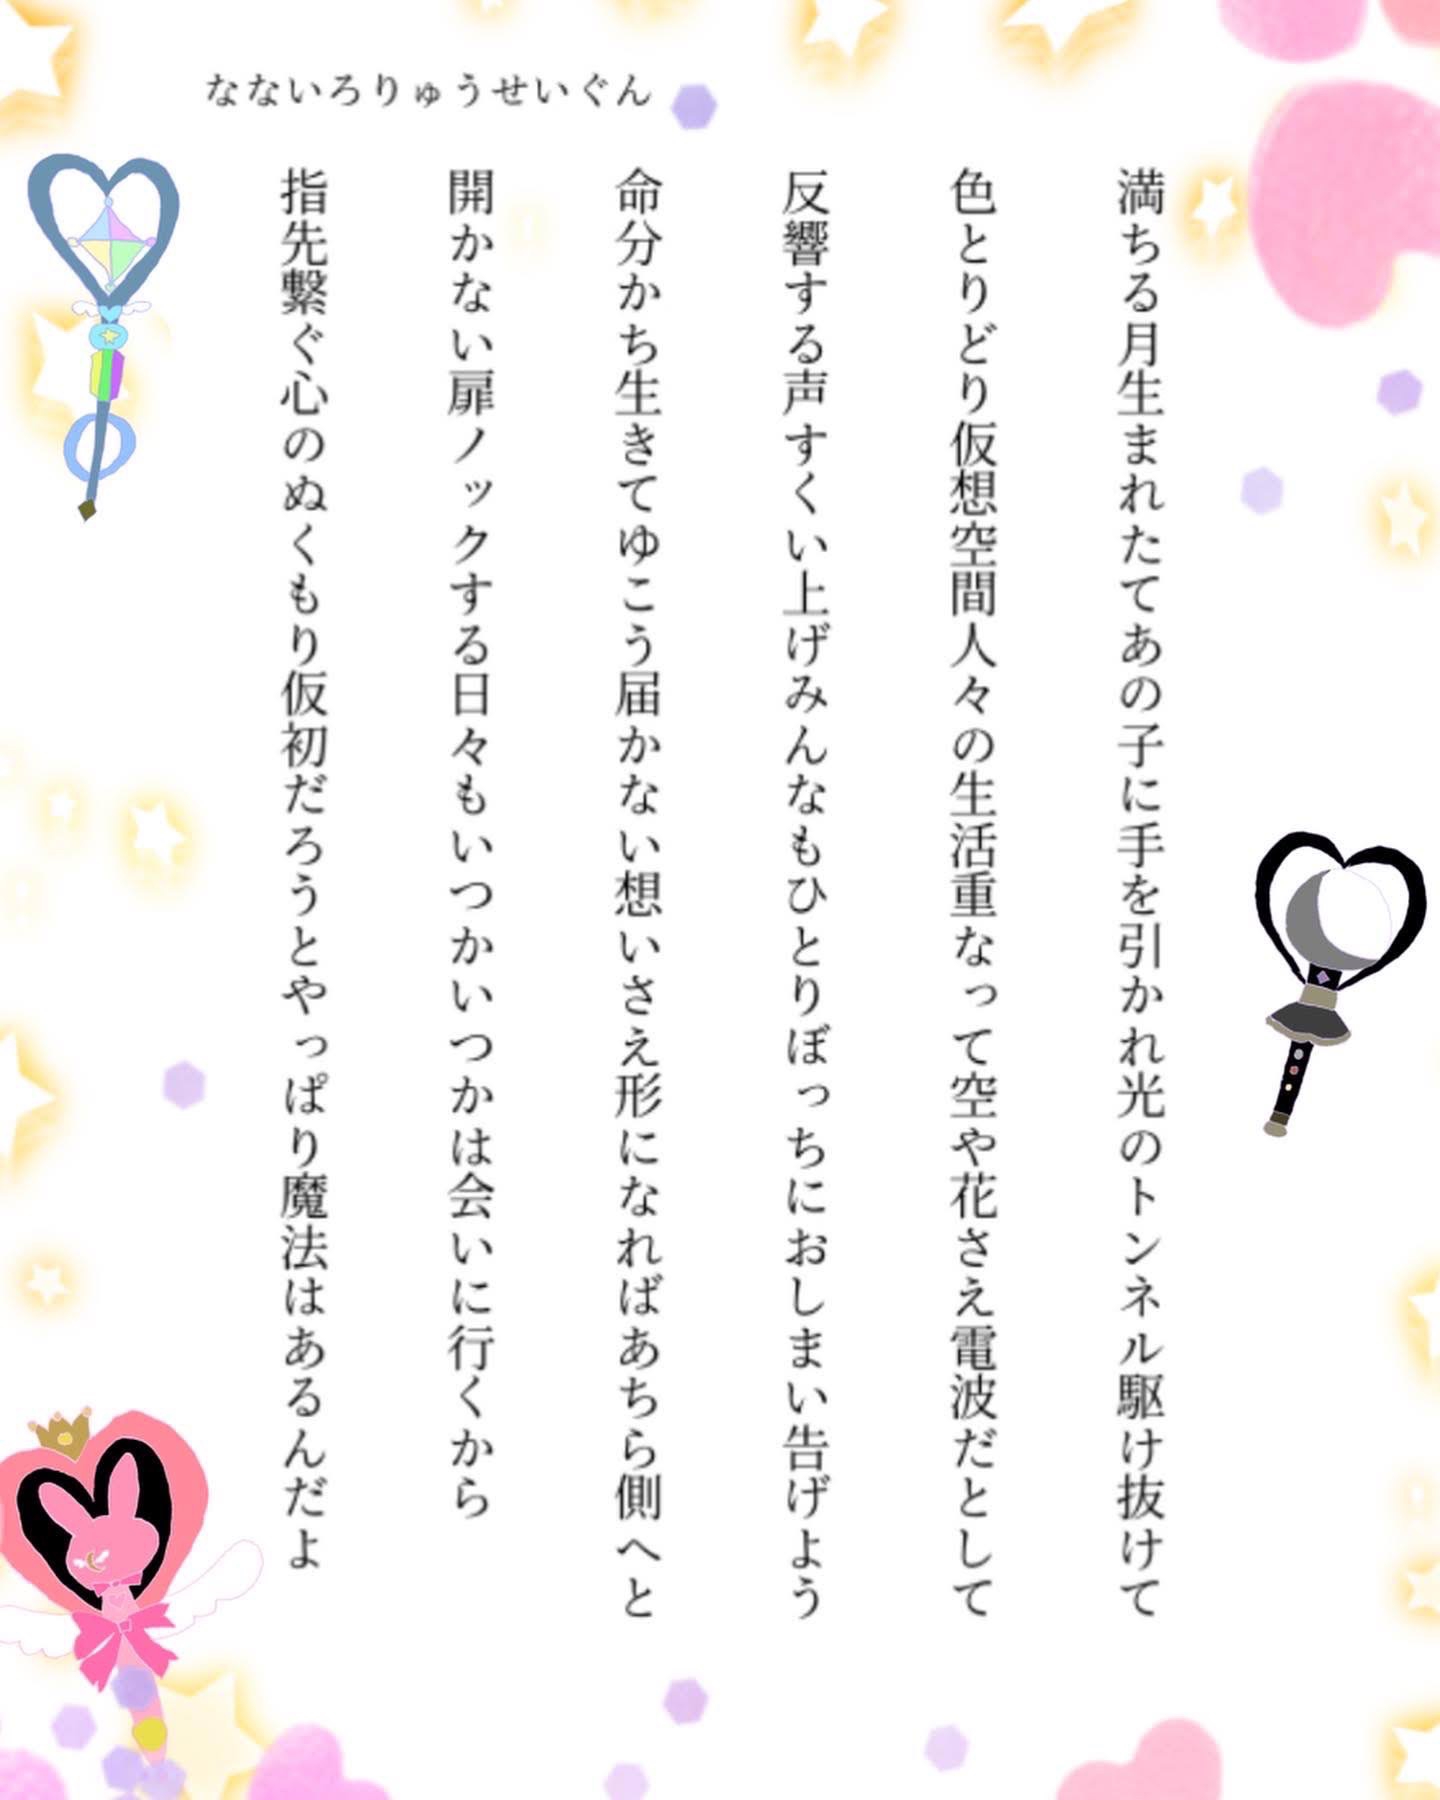 なないろりゅうせいぐん
満ちる月生まれたてあの子に手を引かれ光のトンネル駆け抜けて
色とりどり仮想空間人々の生活重なって空や花さえ電波だとして
反響する声すくい上げみんなもひとりぼっちにおしまい告げよう
命分かち生きてゆこう届かない想いさえ形になればあちら側へと
開かない扉ノックする日々もいつかいつかは会いに行くから
指先繋ぐ心のぬくもり仮初だろうとやっぱり魔法はあるんだよ